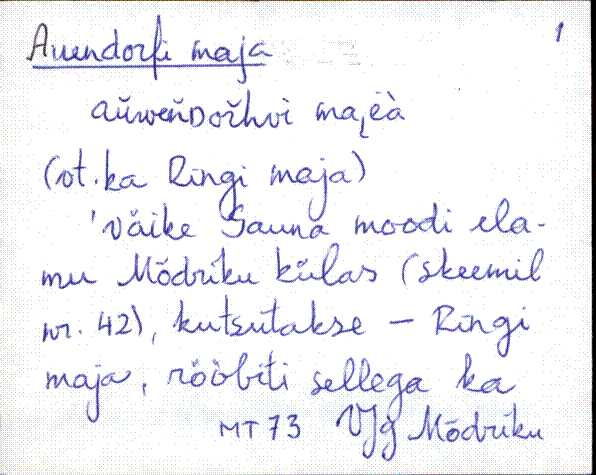 Auendorfi maja 1
aŭweňDořhvi maᴉëà
(vt. ka Ringi maja)
'väike sauna moodi ela-
mu Mõdriku külas (skeemil
nr. 42), kutsutakse – Ringi
maja, rööbiti sellega ka
MT 73 VJg Mõdriku